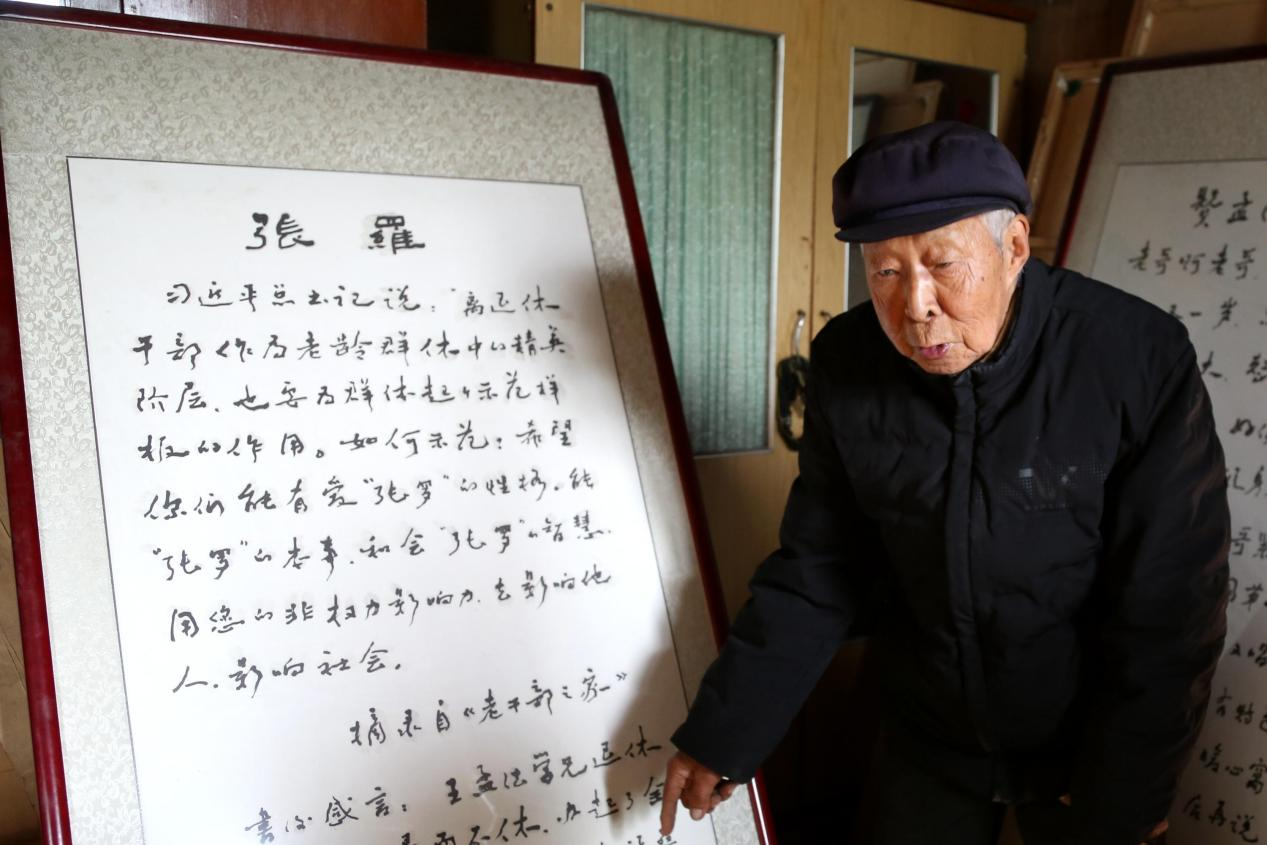 張 羅
习近平总书记说："离退休
干部作为老龄群体中的精英
阶层、也要为群体起个示范样
板的作用。如何示范：希望
你们能有爱"张罗"的性格、能
"张罗"的本事、和会"张罗"的智慧、
用您的非权力影响力、去影响他
人、影响社会。
摘录自《老干部之家》
书后感言：王孟法学兄退休
而不休、办起了
贤孟
老哥呵老哥
一岁
大
暖心窝
后再说